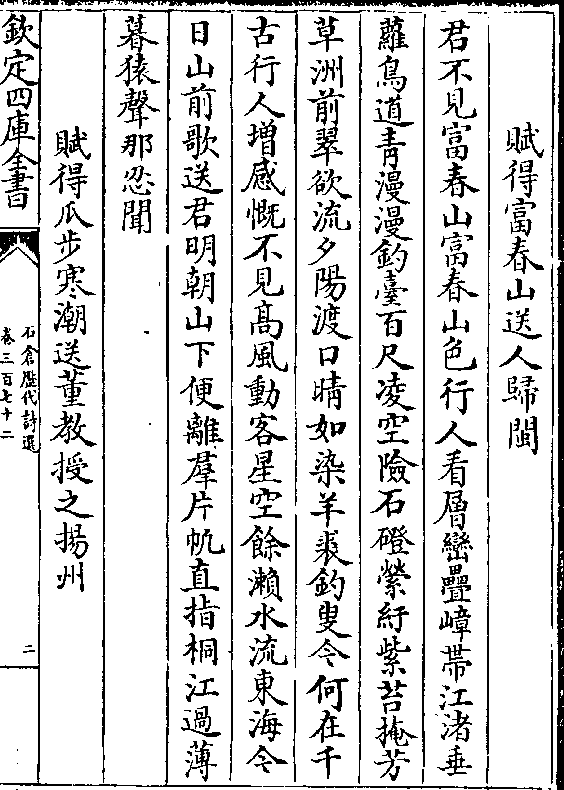 賦得富春山送人歸閩
君不見富春山富春山色行人看層巒疊嶂帶江渚垂
蘿鳥道青漫漫釣臺百尺凌空險石磴縈紆紫苔掩芳
草洲前翠欲流夕陽渡口晴如染羊裘釣叟今何在千
古行人增感慨不見髙風動客星空餘瀨水流東海今
日山前歌送君明朝山下便離羣片帆直指桐江過薄
暮猿聲那忍聞
賦得瓜步寒潮送董教授之揚州
欽定四庫全書
石倉歷代詩選
卷三百七十二
二